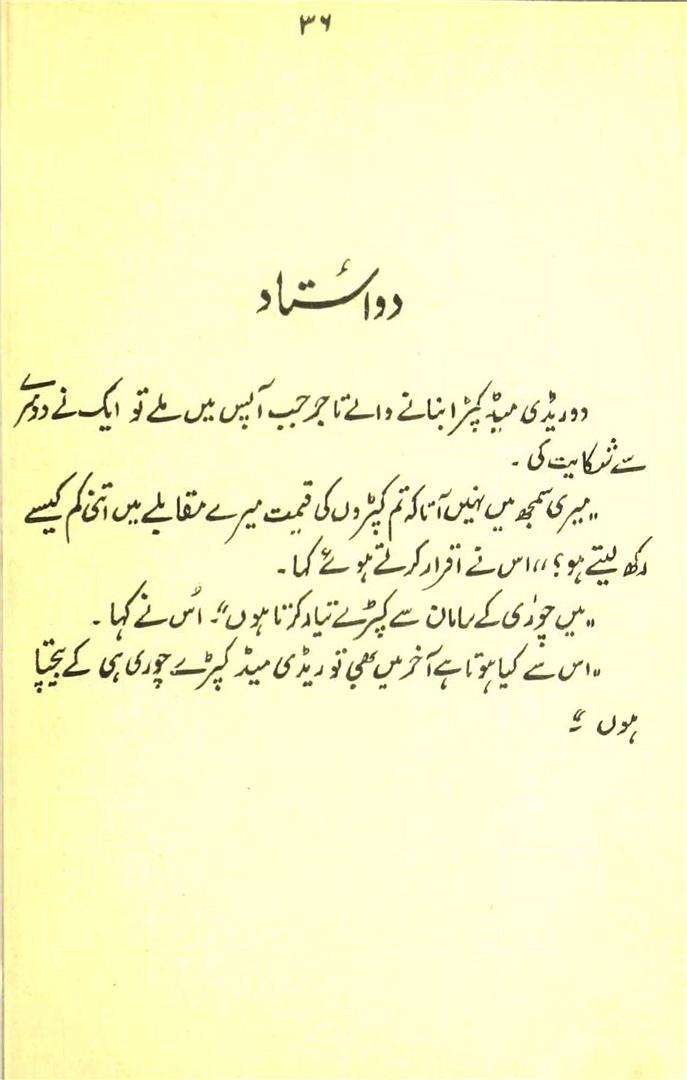 ۳۶
دو اُستاد
دو ریڈی میڈ کپڑا بنانے والے تاجر جب آپس میں ملے تو ایک نے دوسرے
سے شکایت کی۔
"میری سمجھ میں نہیں آتا کہ تم کپڑوں کی قیمت میرے مقابلے میں اتنی کم کیسے
رکھ لیتے ہو؟" اس نے اقرار کرتے ہوئے کہا۔
"میں چوری کے سامان سے کپڑے تیار کرتا ہوں"۔ اُس نے کہا۔
"اس سے کیا ہوتا ہے آخر میں بھی تو ریڈی میڈ کپڑے چوری ہی کے بیچتا
ہوں"۔